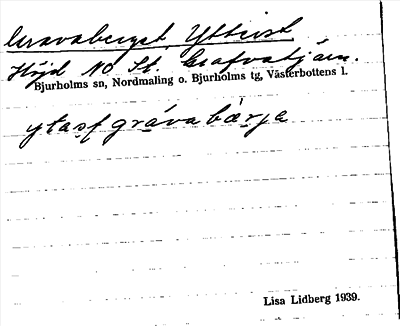 Gravaberget, Ytterst
Höjd NO St. Grafvatjärn.
Bjurholms sn, Nordmaling o. Bjurholms tg, Västerbottens l.
ytasf gráva bærja
Lisa Lidberg 1939.